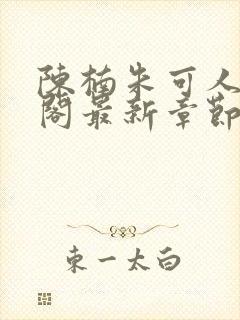 陳楠朱可人
閣最新章節
東一太白